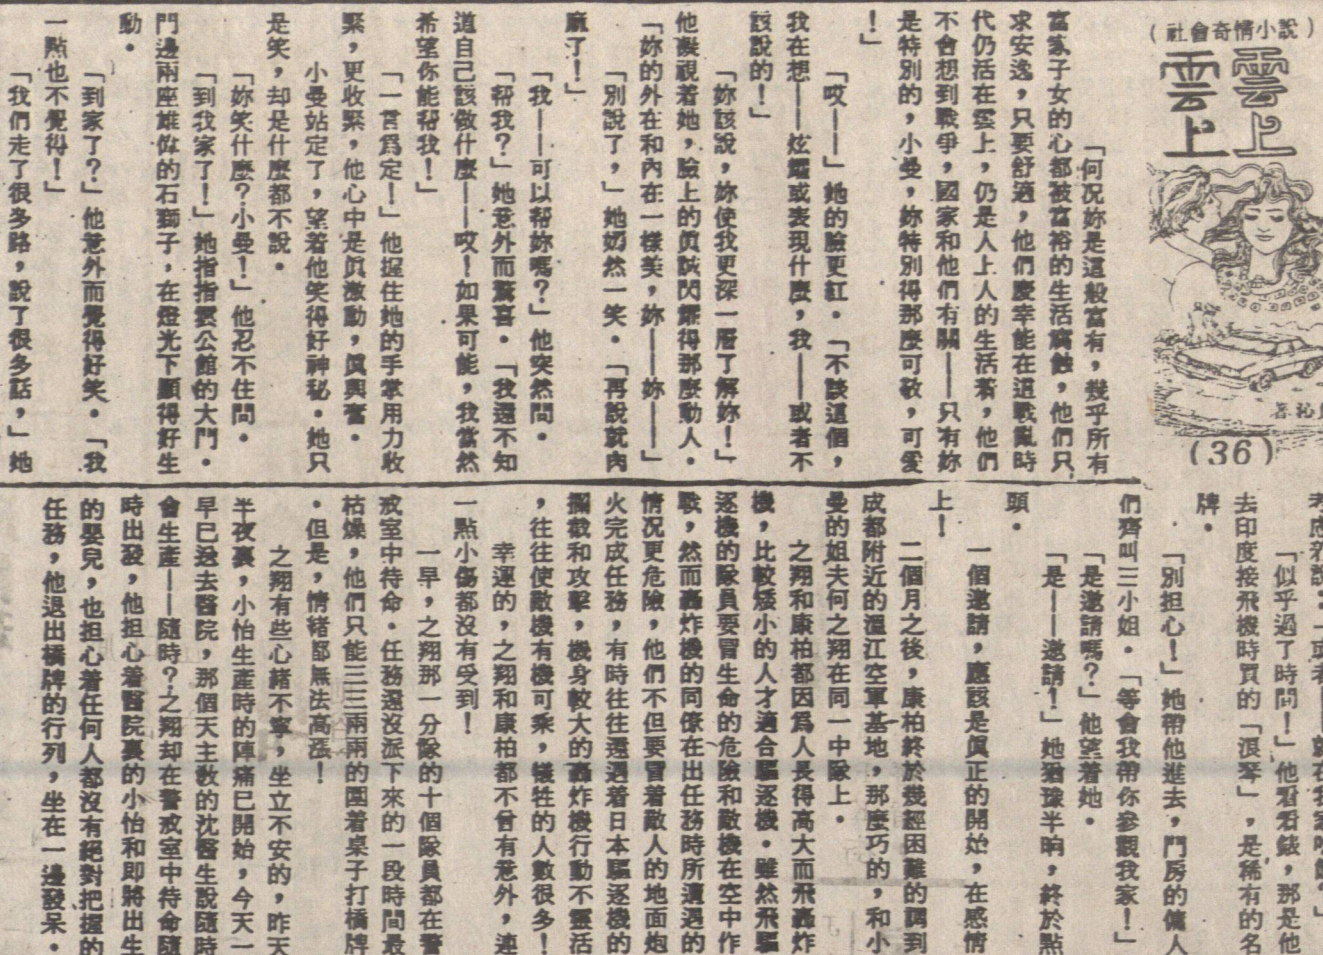 （社會奇情小說）
雲上
雲上
(36)
「何况妳是這般富有，幾乎所有
富家子女的心都被富裕的生活腐蝕，他們只
求安逸，只要舒適，他們慶幸能在這戰亂時
代仍活在雲上，仍是人上人的生活著，他們
不會想到戰爭，國家和他們有關——只有妳
是特別的，小曼，妳特別得那麼可敬，可愛
！」
「哎——」她的臉更紅。「不談這個，
我在想——炫耀或表現什麼，我——或者不
該說的！」
「妳該說，妳使我更深一層了解妳！」
他凝視着她，臉上的眞誠閃耀得那麼動人。
「妳的外在和內在一樣美，妳——妳——」
「別說了，」她嫣然一笑。「再說就肉
麻了！」
「我——可以帮妳嗎？」他突然問。
「帮我？」她意外而驚喜。「我還不知
道自己該做什麼——哎！如果可能，我當然
希望你能帮我！」
「一言爲定！」他握住她的手掌用力收
緊，更收緊，他心中是眞激動，眞興奮。
小曼站定了，望着他笑得好神秘。她只
是笑，却是什麼都不說。
「妳笑什麼？小曼！」他忍不住問。
「到我家了！」她指指雲公館的大門。
門邊兩座雄偉的石獅子，在燈光下顯得好生
動。
「到家了？」他意外而覺得好笑。「我
一點也不覺得！」
「我們走了很多路，說了很多話，」她
「似乎過了時間！」他看看錶，那是他
去印度接飛機時買的「浪琴」，是稀有的名
牌。
「別担心！」她帶他進去，門房的傭人
們齊叫三小姐。「等會我帶你參觀我家！」
「是邀請嗎？」他望着她。
「是——邀請！」她猶豫半晌，終於點
頭。
一個邀請，應該是眞正的開始，在感情
上！
二個月之後，康柏終於幾經困難的調到
成都附近的溫江空軍基地，那麼巧的，和小
曼的姐夫何之翔在同一中隊上。
之翔和康柏都因爲人長得高大而飛轟炸
機，比較矮小的人才適合驅逐機。雖然飛驅
逐機的隊員要冒生命的危險和敵機在空中作
戰，然而轟炸機的同僚在出任務時所遭遇的
情况更危險，他們不但要冒着敵人的地面炮
火完成任務，有時往往還遇着日本驅逐機的
攔截和攻擊，機身較大的轟炸機行動不靈活
，往往使敵機有機可乘，犧牲的人數很多！
幸運的，之翔和康柏都不曾有意外，連
一點小傷都沒有受到！
一早，之翔那一分隊的十個隊員都在警
戒室中待命。任務還沒派下來的一段時間最
枯燥，他們只能三三兩兩的圍着桌子打橋牌
。但是，情緒都無法高漲！
之翔有些心緒不寧，坐立不安的，昨天
半夜裏，小怡生產時的陣痛已開始，今天一
早已送去醫院，那個天主教的沈醫生說隨時
會生產——隨時？之翔却在警戒室中待命隨
時出發，他担心着醫院裏的小怡和即將出生
的嬰兒，也担心着任何人都沒有絕對把握的
任務，他退出橋牌的行列，坐在一邊發呆。